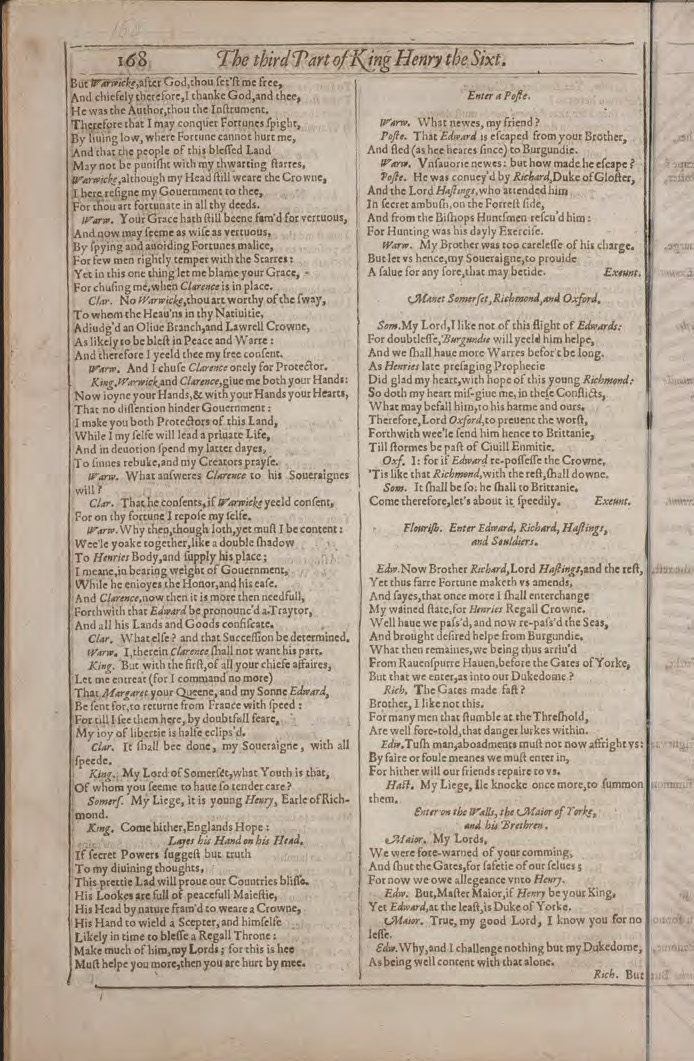 168 The third Part of King Henry the Sixt.
But Warwicke, after God, thou set'st me free,
And chiefely therefore, I thanke God, and thee,
He was the Author, thou the Instrument.
Therefore that I may conquer Fortunes spight,
By liuing low, where Fortune cannot hurt me,
And that the people of this blessed Land
May not be punisht with my thwarting starres,
Warwicke, although my Head still weare the Crowne,
I here resigne my Gouernment to thee,
For thou art fortunate in all thy deeds.
Warw. Your Grace hath still beene fam'd for vertuous,
And now may seeme as wise as vertuous,
By spying and auoiding Fortunes malice,
For few men rightly temper with the Starres:
Yet in this one thing let me blame your Grace,
For chusing me, when Clarence is in place.
Clar. No Warwicke, thou art worthy of the sway,
To whom the Heau'ns in thy Natiuitie,
Adiudg'd an Oliue Branch, and Lawrell Crowne,
As likely to be blest in Peace and Warre:
And therefore I yeeld thee my free consent.
Warw. And I chuse Clarence onely for Protector.
King. Warwick and Clarence, giue me both your Hands:
Now ioyne your Hands, & with your Hands your Hearts,
That no dissention hinder Gouernment:
I make you both Protectors of this Land,
While I my selfe will lead a priuate Life,
And in deuotion spend my latter dayes,
To sinnes rebuke, and my Creators prayse.
Warw. What answeres Clarence to his Soueraignes
will?
Clar. That he consents, if Warwicke yeeld consent,
For on thy fortune I repose my selfe.
Warw. Why then, though loth, yet must I be content:
Wee'le yoake together, like a double shadow
To Henries Body, and supply his place;
I meane, in bearing weight of Gouernment,
While he enioyes the Honor, and his ease.
And Clarence, now then it is more then needfull,
Forthwith that Edward be pronounc'd a Traytor,
And all his Lands and Goods confiscate.
Clar. What else? and that Succession be determined.
Warw. I, therein Clarence shall not want his part.
King. But with the first, of all your chiefe affaires,
Let me entreat (for I command no more)
That Margaret your Queene, and my Sonne Edward,
Be sent for, to returne from France with speed:
For till I see them here, by doubtfull feare,
My ioy of libertie is halfe eclips'd.
Clar. It shall bee done, my Soueraigne, with all
speede.
King. My Lord of Somerset, what Youth is that,
Of whom you seeme to haue so tender care?
Somers. My Liege, it is young Henry, Earle of Rich-
mond.
King. Come hither, Englands Hope:
Layes his Hand on his Head.
If secret Powers suggest but truth
To my diuining thoughts,
This prettie Lad will proue our Countries blisse.
His Lookes are full of peacefull Maiestie,
His Head by nature fram'd to weare a Crowne,
His Hand to wield a Scepter, and himselfe
Likely in time to blesse a Regall Throne:
Make much of him, my Lords; for this is hee
Must helpe you more, then you are hurt by mee.
Enter a Poste.
Warw. What newes, my friend?
Poste. That Edward is escaped from your Brother,
And fled (as hee heares since) to Burgundie.
Warw. Vnsauorie newes: but how made he escape?
Poste. He was conuey'd by Richard, Duke of Gloster,
And the Lord Hastings, who attended him
In secret ambush, on the Forrest side,
And from the Bishops Huntsmen rescu'd him:
For Hunting was his dayly Exercise.
Warw. My Brother was too carelesse of his charge.
But let vs hence, my Soueraigne, to prouide
A salue for any sore, that may betide. Exeunt.
Manet Somerset, Richmond, and Oxford.
Som. My Lord, I like not of this flight of Edwards:
For doubtlesse, Burgundie will yeeld him helpe,
And we shall haue more Warres befor't be long.
As Henries late presaging Prophecie
Did glad my heart, with hope of this young Richmond:
So doth my heart mis-giue me, in these Conflicts,
What may befall him, to his harme and ours.
Therefore, Lord Oxford, to preuent the worst,
Forthwith wee'le send him hence to Brittanie,
Till stormes be past of Ciuill Enmitie.
Oxf. I: for if Edward re-possesse the Crowne,
'Tis like that Richmond, with the rest, shall downe.
Som. It shall be so: he shall to Brittanie.
Come therefore, let's about it speedily. Exeunt.
Flourish. Enter Edward, Richard, Hastings,
and Souldiers.
Edw. Now Brother Richard, Lord Hastings, and the rest,
Yet thus farre Fortune maketh vs amends,
And sayes, that once more I shall enterchange
My wained state, for Henries Regall Crowne.
Well haue we pass'd, and now re-pass'd the Seas,
And brought desired helpe from Burgundie.
What then remaines, we being thus arriu'd
From Rauenspurre Hauen, before the Gates of Yorke,
But that we enter, as into our Dukedome?
Rich. The Gates made fast?
Brother, I like not this.
For many men that stumble at the Threshold,
Are well fore-told, that danger lurkes within.
Edw. Tush man, aboadments must not now affright vs:
By faire or foule meanes we must enter in,
For hither will our friends repaire to vs.
Hast. My Liege, Ile knocke once more, to summon
them.
Enter on the Walls, the Maior of Yorke,
and his Brethren.
Maior. My Lords,
We were fore-warned of your comming,
And shut the Gates, for safetie of our selues;
For now we owe allegeance vnto Henry.
Edw. But, Master Maior, if Henry be your King,
Yet Edward, at the least, is Duke of Yorke.
Maior. True, my good Lord, I know you for no
lesse.
Edw. Why, and I challenge nothing but my Dukedome,
As being well content with that alone.
Rich. But